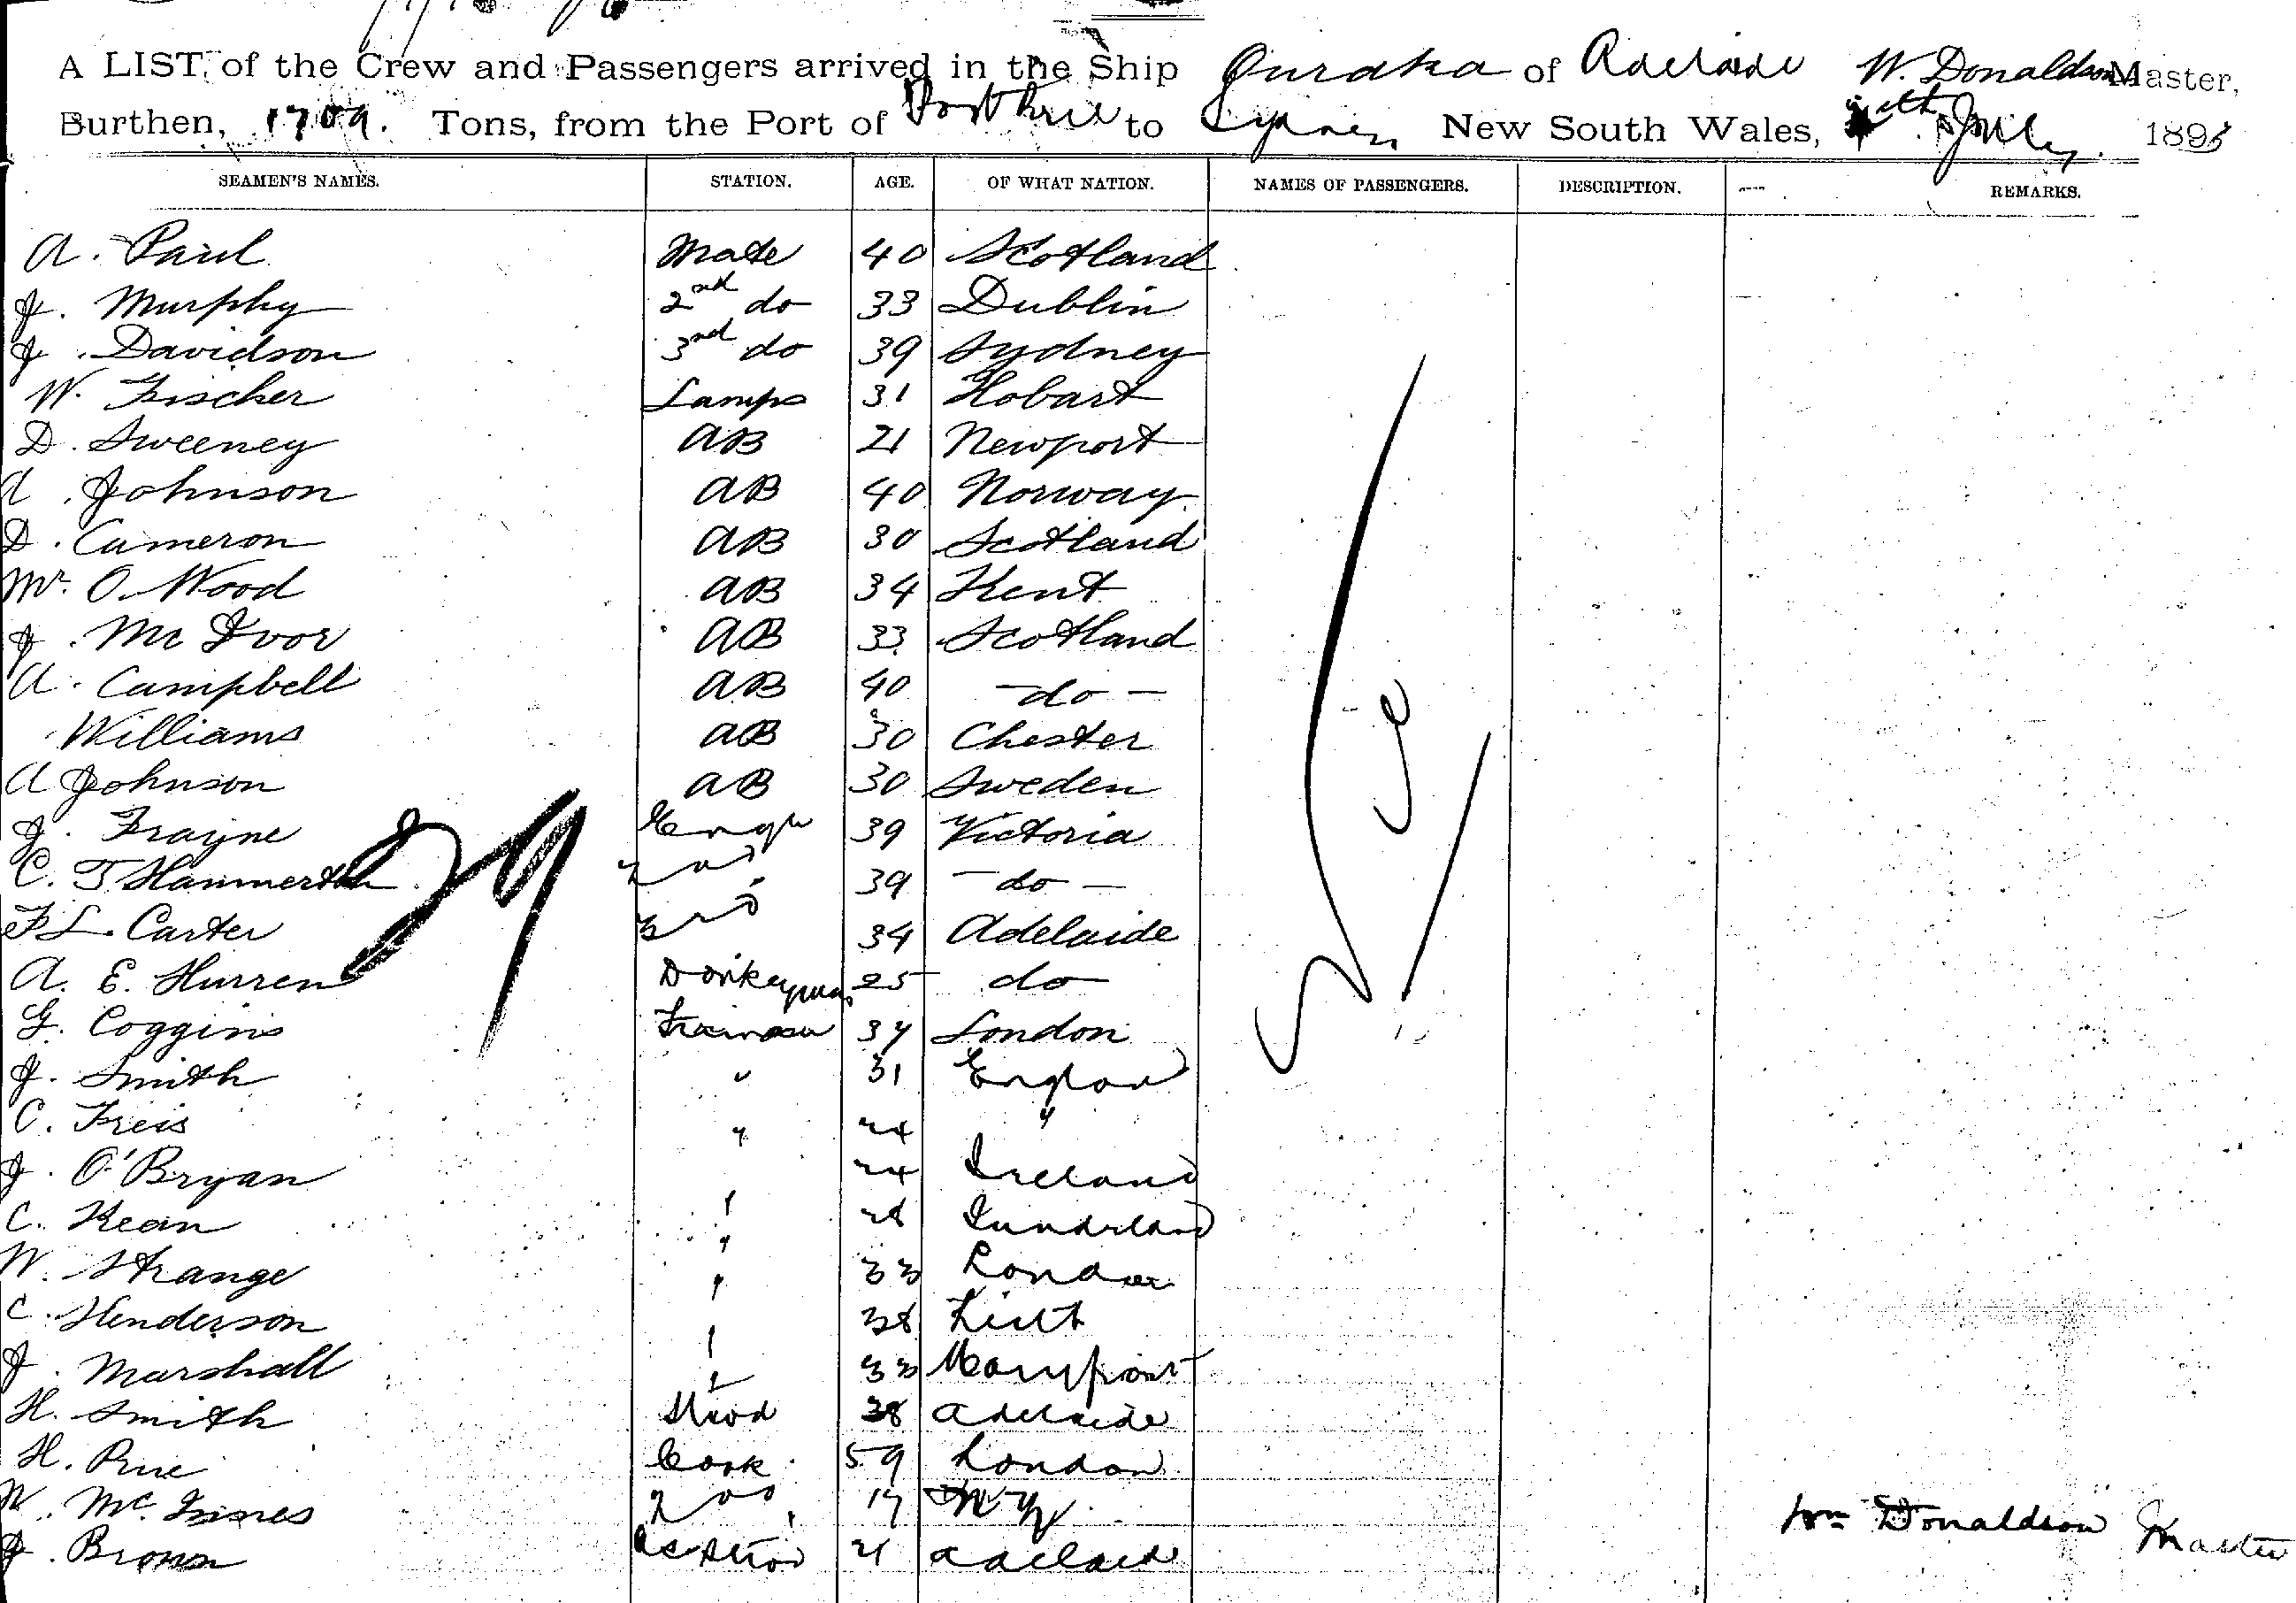 A LIST of the Crew and Passengers arrived in the Ship Ouraka of Adelaide W. Donaldson Master,
Burthen, 1709. Tons, from the Port of Port Pirie to Sydney New South Wales, July. 1895
SEAMEN'S NAMES. STATION. AGE. OF WHAT NATION. NAMES OF PASSENGERS. DESCRIPTION. REMARKS.
A. Paul Mate 40 Scotland
J. Murphy 2nd do 33 Dublin
J. Davidson 3rd do 39 Sydney
W. Fischer Lamps 31 Hobart
D. Sweeney AB 21 Newport
A. Johnson AB 40 Norway.
D. Cameron AB 30 Scotland
Mr. O. Wood AB 34 Kent
J. Mc Ivor AB 33 Scotland
A. Campbell AB 40 - do -
Williams AB 30 Chester
A Johnson AB 30 Sweden
J. Frayne Engr 39 Victoria
C. T. 2nd 39 - do -
F L. Carter 3rd 34 Adelaide
A. E. Hurren Donkeyman 25 do
G. Coggins Fireman 37 London
J. Smith " 31 England
C. Freis " 24 "
J. O'Bryan " 24 Ireland
C. Kean " 28 Sunderland
W. Strange " 33 London
C. Henderson " 38 Leith
J. Marshall " 33 Maryport
H. Smith Stwd 38 Adelaide
H. Cook 59 London
W. McInnes 2nd 17 N Z
J. Brown As Stwd 21 Adelaide
Wm Donaldson Master